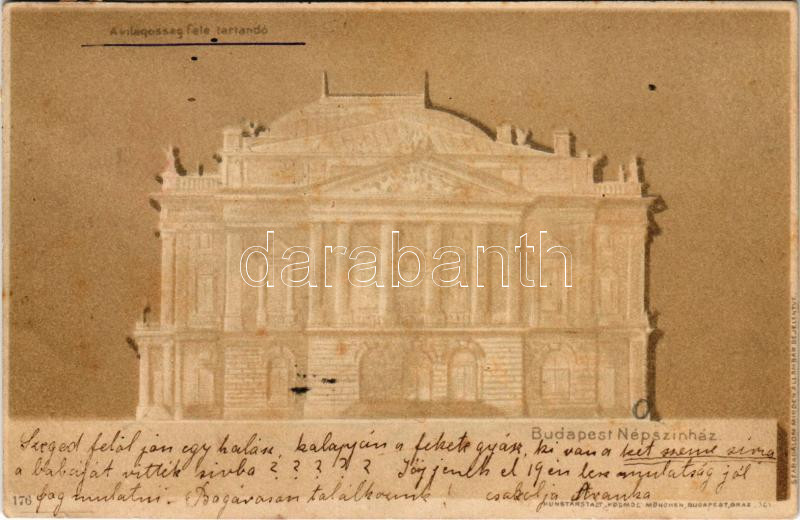 A világosság felé tartandó
darabanth
Budapest Népszinház
Szeged felöl jön egy halász, kalapján a fekete gyász, ki van a két szeme sírva
a babáját vitték sirba ? ? ? ? ? Jöjjenek el 19 én lesz mulatság jól
fog mulatni. Bogavason találkozunk! csakolja Aranka
176
KUNSTANSTALT „KOSMOS” MÜNCHEN, BUDAPEST, GRAZ.
SZABADALOM MINDEN ÁLLAMBAN BEJELENTVE.